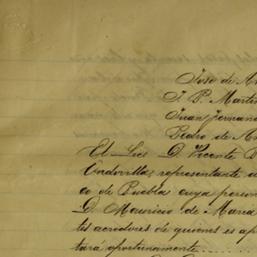 José de
J. P. Martin
Juan Fernand
Pedro de
El Lic. D. Vicente
representante
co de Puebla cuya person
D. Mauricio de Maria
les acreedores de quienes es ap
tará oportunamente